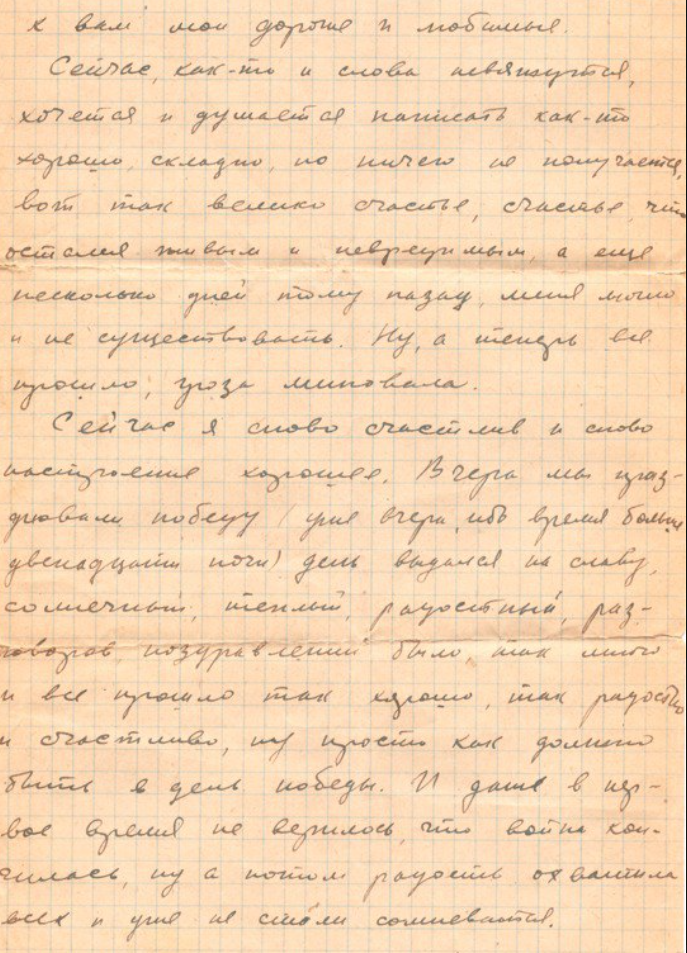 к вам мои дорогие и любимые.
Сейчас, как-то и слова невяжутся,
хочется и думается написать как-то
хорошо, складно, но ничего не получается,
вот так велико счастье, счастье, что
остался живым и невредимым, а еще
несколько дней тому назад, меня могло
и не существовать. Ну, а теперь все
прошло, гроза миновала.
Сейчас я снова счастлив и снова
настроение хорошее. Вчера мы праз-
дновали победу (уже вчера, ибо время больше
двенадцати ночи) день выдался на славу,
солнечный, теплый, радостный, раз-
говоров, поздравлений было так много
и все прошло так хорошо, так радостно
и счастливо, ну просто как должно
быть в день победы. И даже в пер-
вое время не верилось, что война кон-
чилась, ну а потом радость охватила
всех и уже не стали сомневатся.